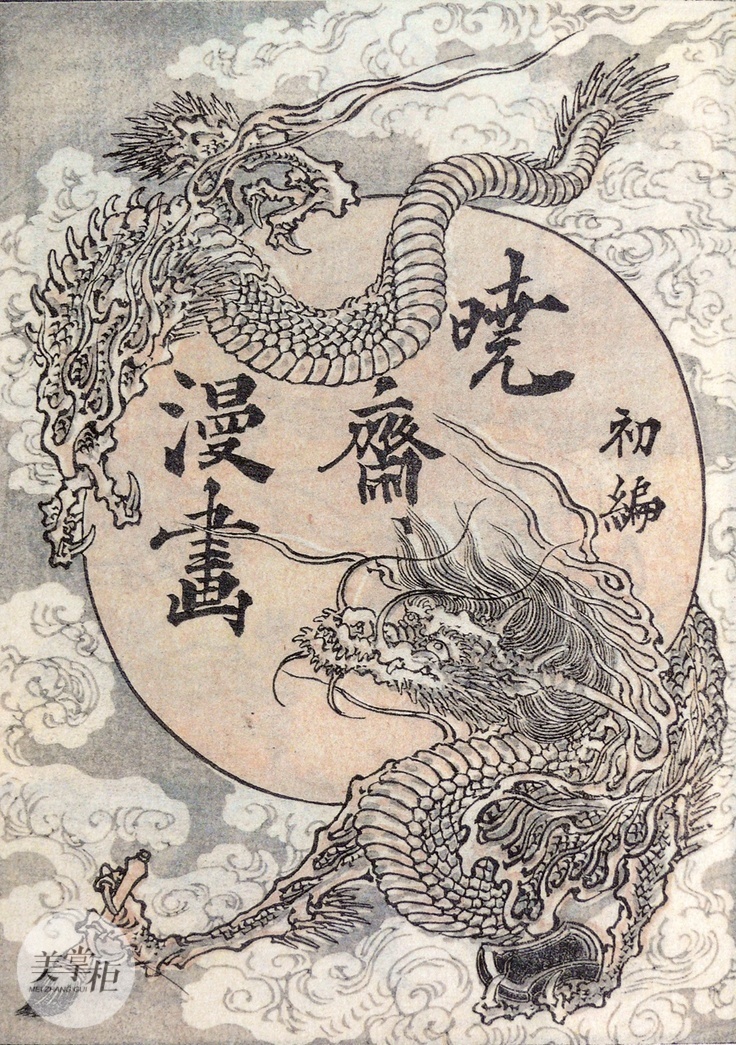 初編
曉齋
漫畫
美掌柜
MEI ZHANG GUI